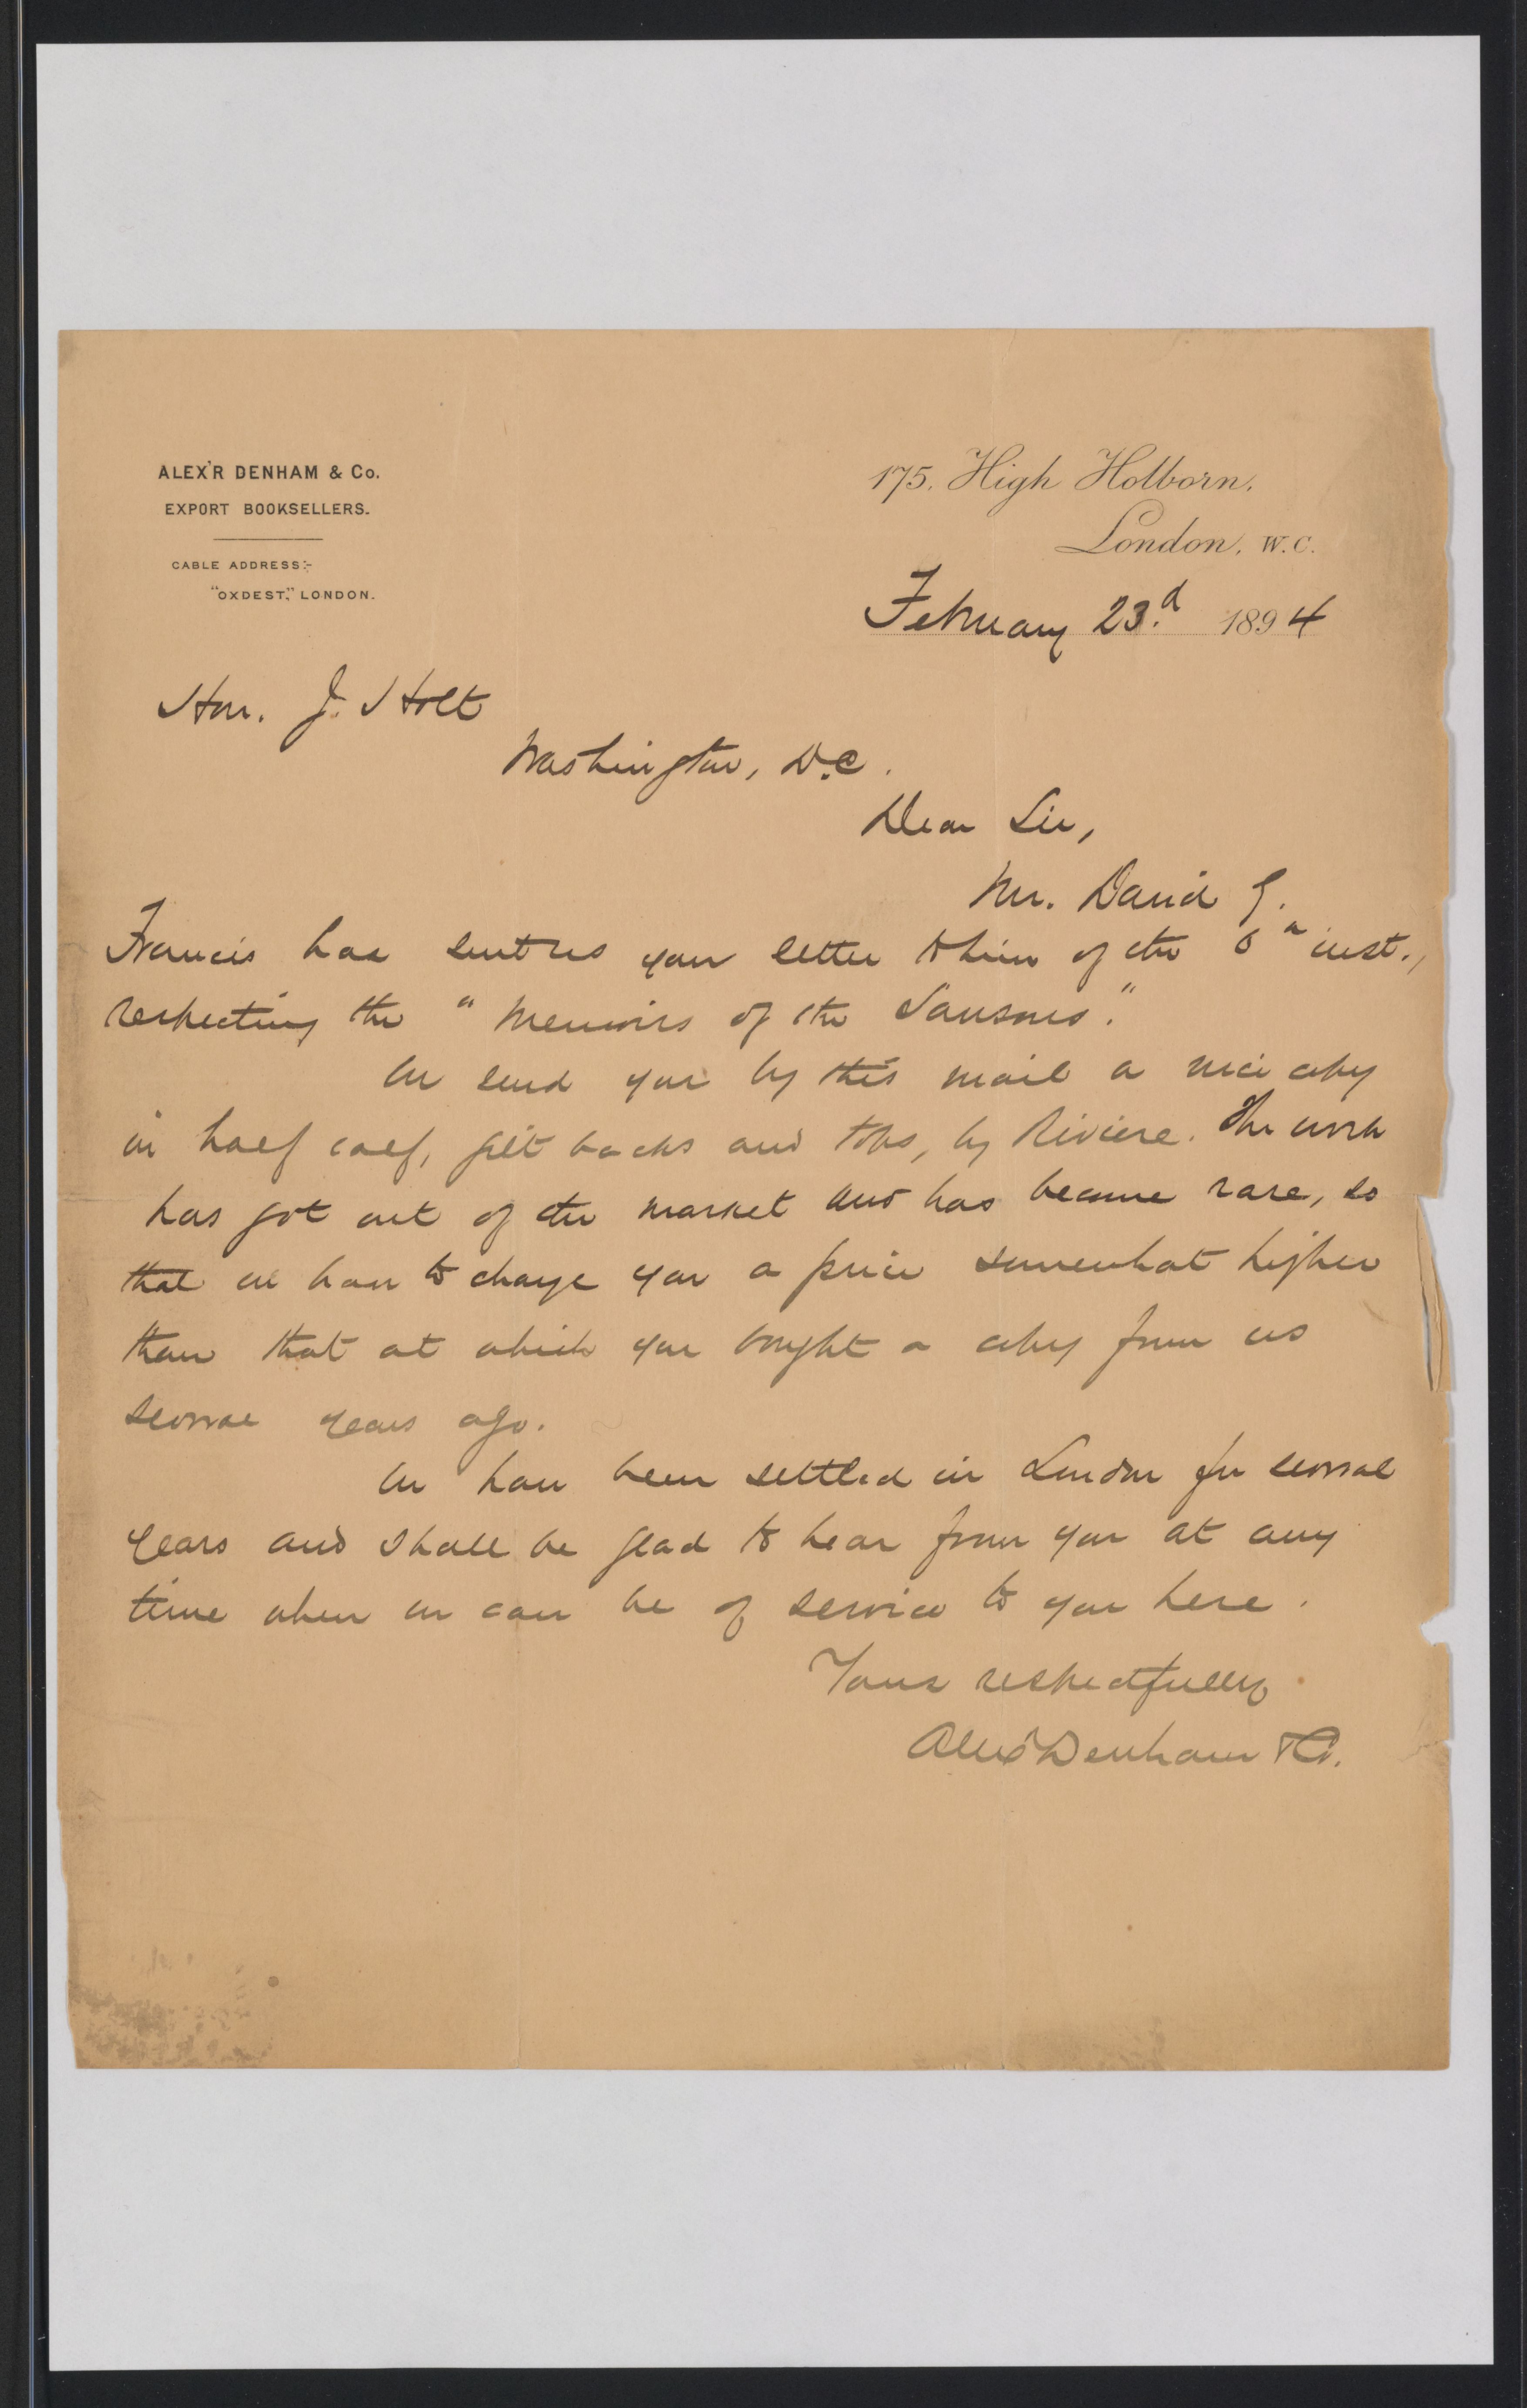 ALEX'R DENHAM & Co.
EXPORT BOOKSELLERS.
CABLE ADDRESS:-
"OXDEST," LONDON.
175, High Holborn,
London, W.C.
February 23.d 1894
Hon. J. Holt
Washington, D.C.
Dear Sir,
Mr. David G.
Francis has sent us your letter to him of the 6th inst.,
respecting the "Memoirs of the Sansons."
We send you by this mail a nice copy
in half calf, gilt backs and tops, by Riviere. The work
has got out of the market and has become rare, so
that we have to charge you a price somewhat higher
than that at which you bought a copy from us
several years ago.
We have been settled in London for several
years and shall be glad to hear from you at any
time when we can be of service to you here.
Yours respectfully
Alexr Denham & Co.